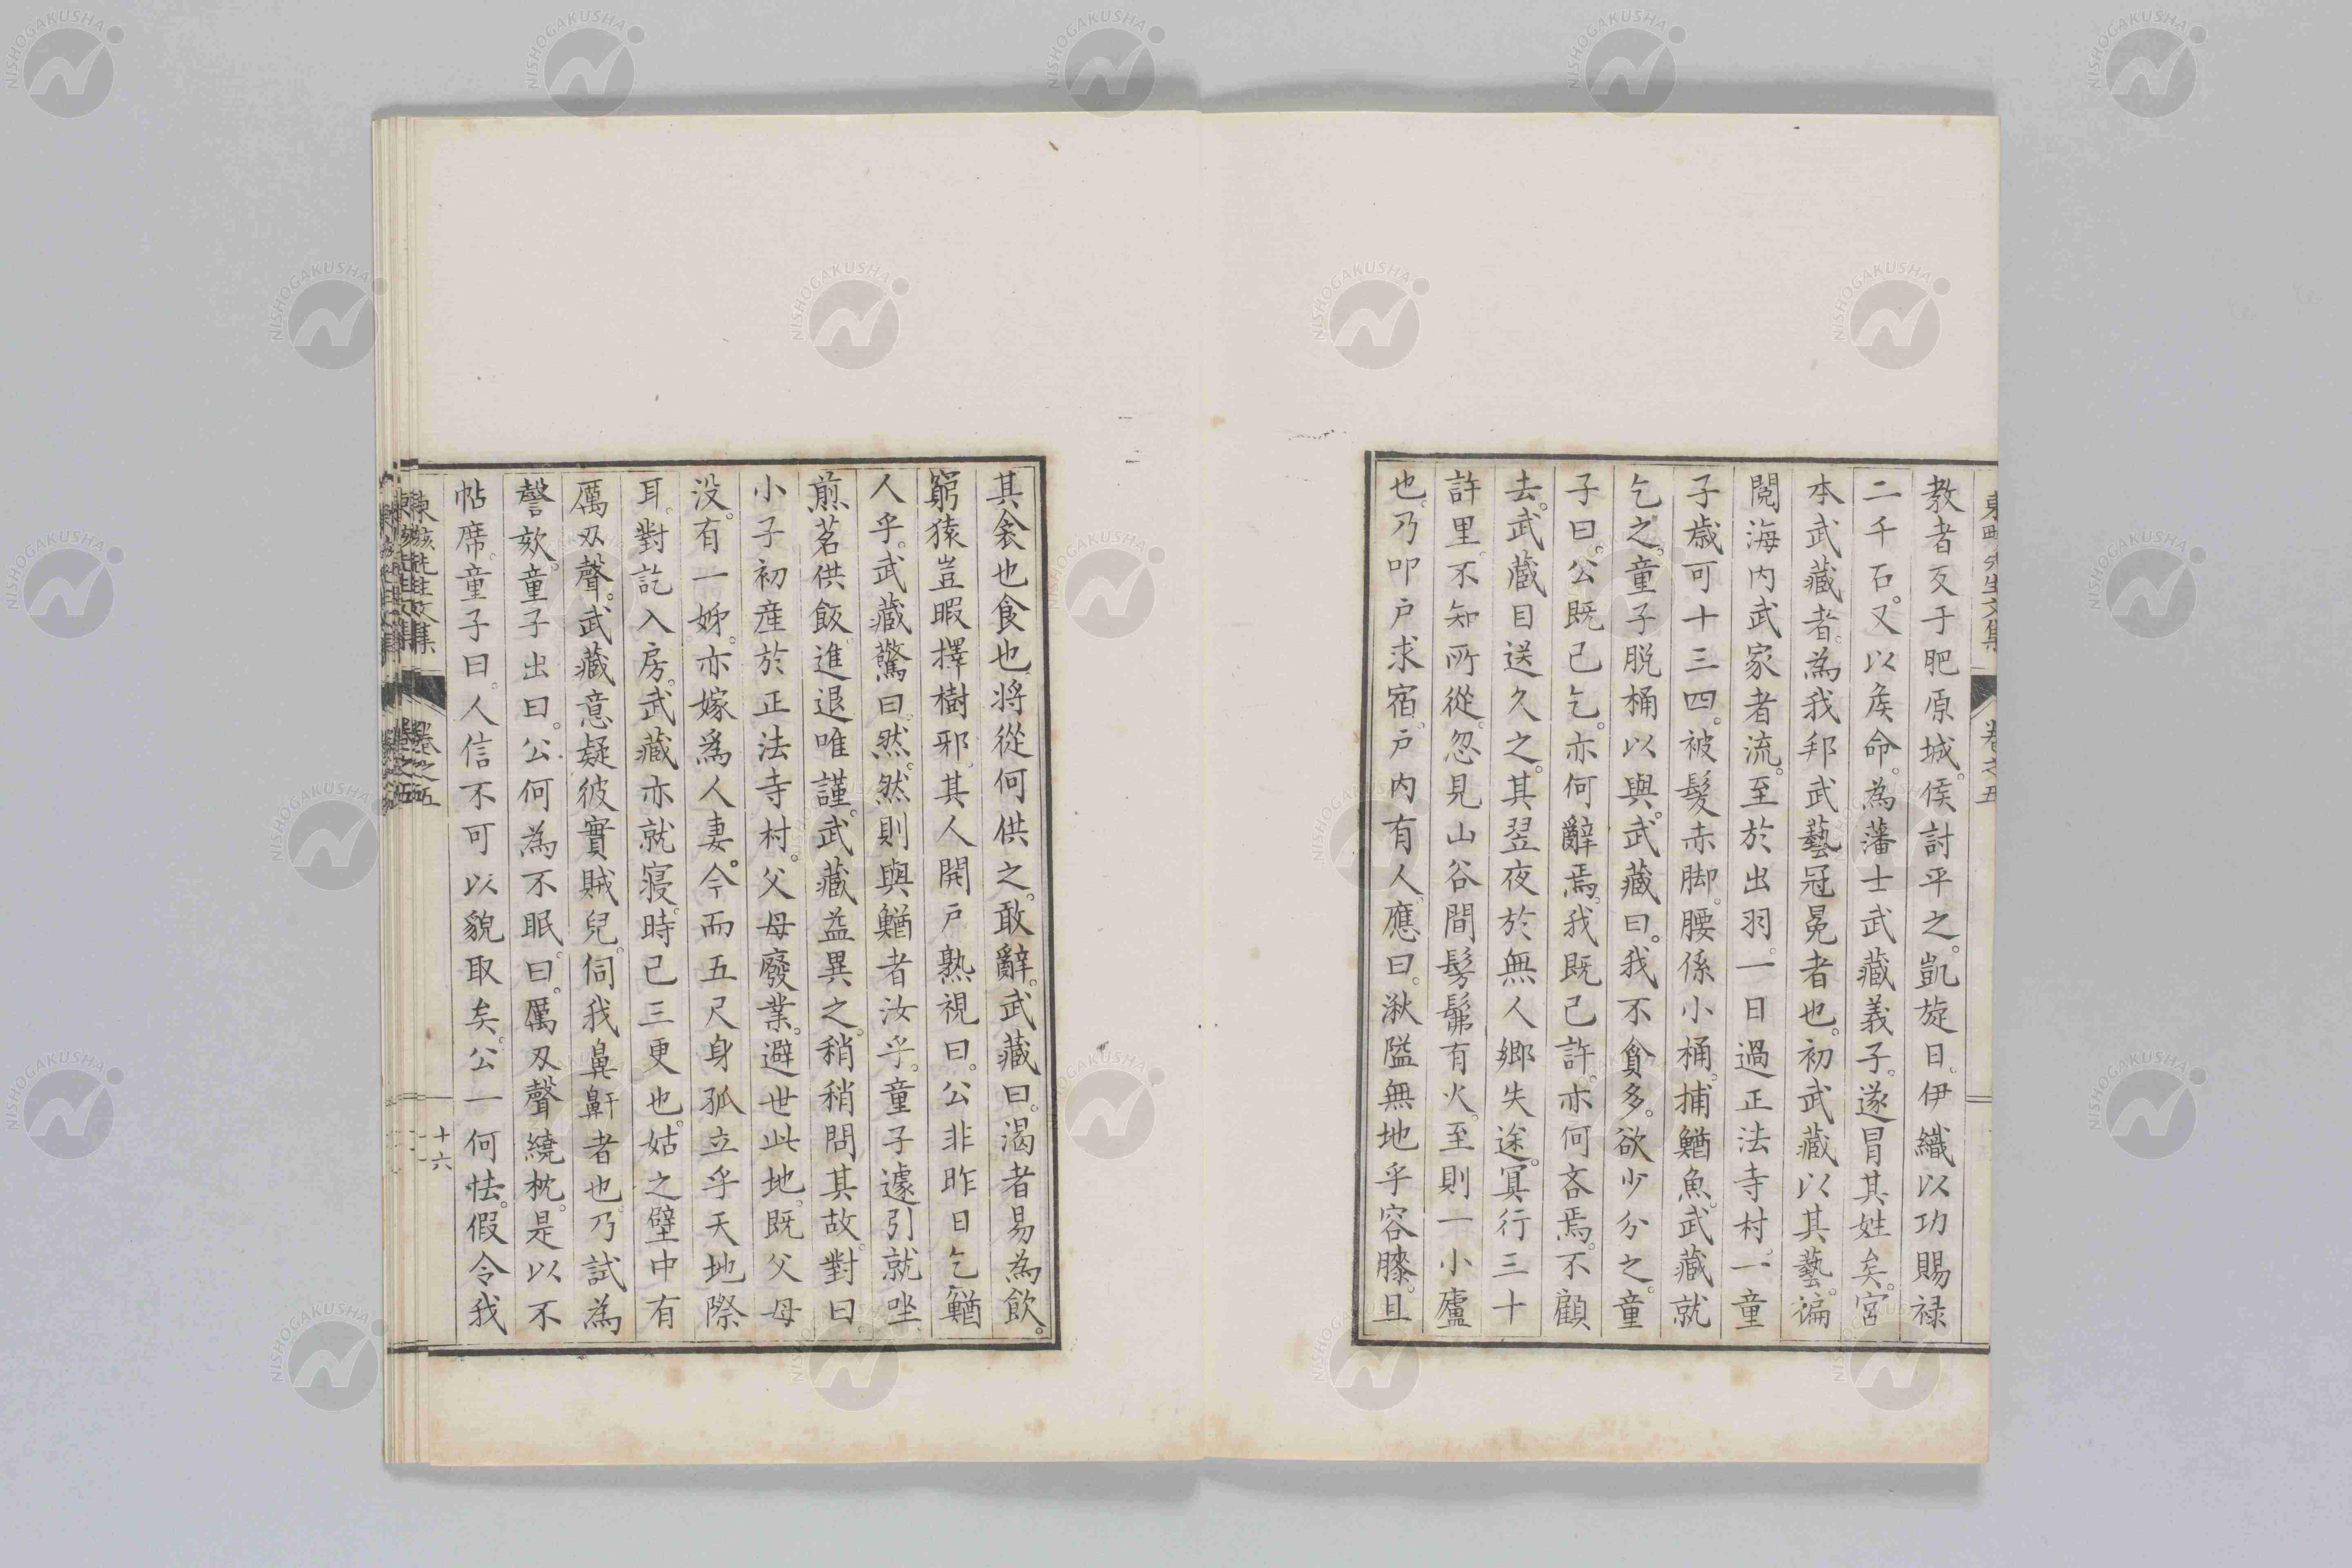 教者反于肥原城。侯討平之。凱旋日。伊織以功賜禄
二千石。又以矦命。為藩士武藏義子。遂冒其姓矣。宮
本武藏者。為我邦武藝冠冕者也。初武藏以其藝。徧
閲海内武家者流。至於出羽。一日過正法寺村。一童
子歳可十三四。被髮赤脚。腰係小桶。捕鰌魚。武藏就
乞之。童子脱桶以與。武藏曰。我不貪多。欲少分之。童
子曰。公既已乞。亦何辭焉。我既已許。亦何吝焉。不顧
去。武藏目送久之。其翌夜於無人郷失途。冥行三十
許里。不知所從。忽見山谷間髣髴有火。至則一小廬
也。乃叩戸求宿。戸内有人。應曰。湫隘無地乎容膝。且
其衾也食也将從何供之。敢辭。武藏曰。渇者易為飲。
窮猿豈暇擇樹邪。其人開戸熟視曰。公非昨日乞鰌
人乎。武藏驚曰。然。然則與鰌者汝乎。童子遽引就坐
煎茗供飯。進退唯謹。武藏益異之。稍稍問其故。對曰
小子初産於正法寺村。父母廢業。避世此地。既父母
没。有一姊。亦嫁爲人妻。今而五尺身孤立乎天地際
耳。對訖入房。武藏亦就寝。時已三更也。姑之壁中有
厲刄聲。武藏意疑彼實賊兒。伺我鼻鼾者也。乃試為
謦欬。童子出曰。公何為不眠。曰。厲刄聲繞枕。是以不
帖席。童子曰。人信不可以貌取矣。公一何怯。假令我
東畡先生文集
卷之五
十六